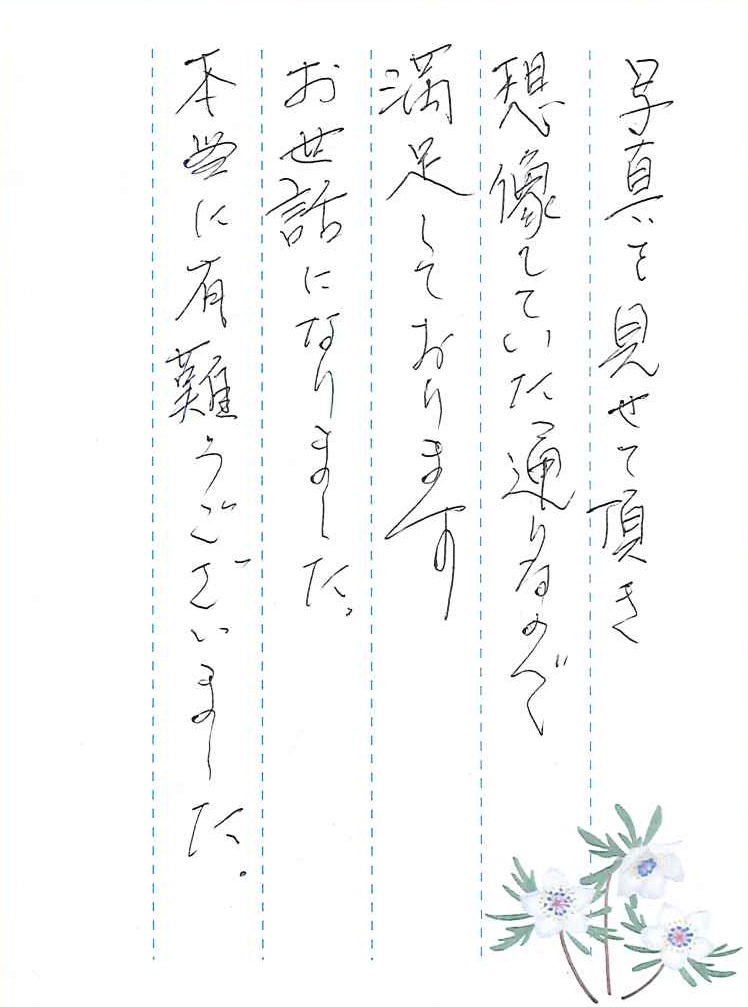 写真を見せて頂き
想像していた通りなので
満足しております
お世話になりました。
本当に有難うございました。